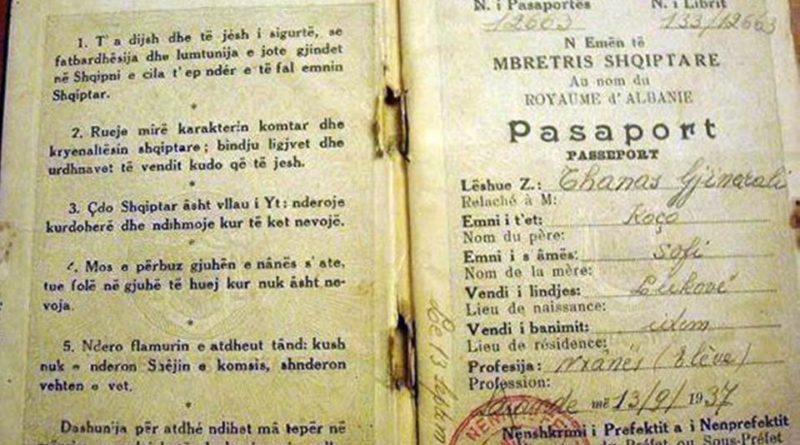 1. T'a dijsh dhe të jèsh i sigurtë, se
fatbardhësija e lumtunija e jote gjindet
në Shqipni e cila t'ep ndér e të fal emnin
Shqiptar.
*
2. Rueje mirë karakterin komtar dhe
kryenaltësin shqiptare; bindju ligjvet dhe
urdhnavet të vendit kudo që të jesh.
*
3. Çdo Shqiptar âsht vllau i Yt: nderoje
kurdoherë dhe ndihmoje kur të ket nevojë.
*
4. Mos e përbuz gjuhën e nânës s'ate,
tue folë në gjuhë të huej kur nuk âsht ne-
voja.
*
5. Ndero flamurin e atdheut tând: kush
nuk e nderon Shêjin e komsis, shnderon
vehten e vet.
*
Dashunija për atdhé ndihet mâ tepër në
N. i Pasaportës N. i Librit
12663 133/12663
N Emën të
MBRETRIS SHQIPTARE
Au nom du
ROYAUME d'ALBANIE
Pasaport
PASSEPORT
Lëshue Z.: Thanas Gjinarali
Relaché à M:
Emni i t'et: Koço
Nom du père:
Emni i s âmës: Sofi
Nom de la mère:
Vendi i lindjes: Lukovë
Lieu de naissance:
Vendi i banimit: idem
Lieu de résidence:
Profesija: Nxânës (Elève)
Profession:
Sarandë më 13/9/1937
Nënshkrimi i Prefektit a i Nenprefektit
du Préfet ou Sous-Préfet